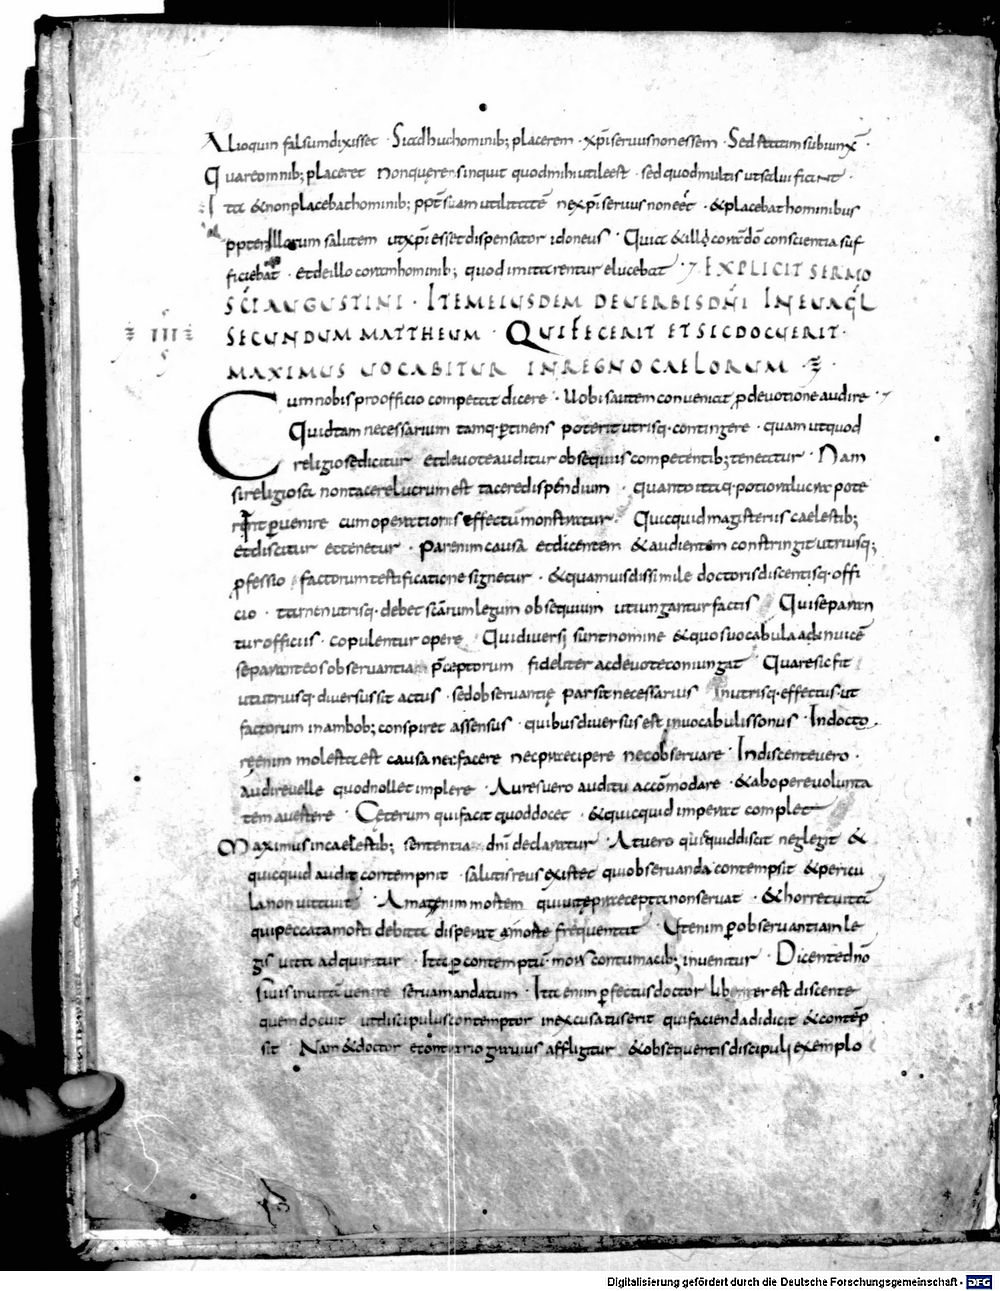 Alioquin falsum dixisset · Si adhuc hominib; placerem · xpi seruus non essem · Sed statim subiunx ·
Quare omnib; placeret non querens inquit quod mihi utile est · sed quod multis ut salui fiant ·
Ita & non placebat hominib; ppt suam utilitatē ne xpi seruus non eēt · & placebat hominibus
ppter illorum salutem ut xpi esset dispensator idoneus · Quia & illi corā dō conscientia suf
ficiebat · et de illo coram hominib; quod imitarentur elucebat · EXPLICIT SERMO
SCI AUGUSTINI · ITEM EIUSDEM DE UERBIS DNI IN EUAGL
SECUNDUM MATTHEUM · QUI FECERIT ET SIC DOCUERIT ·
III
MAXIMUS UOCABITUR IN REGNO CAELORUM ·
Cum nobis pro officio competat dicere · Uobis autem conueniat p deuotione audire ·
Quid tam necessarium tamq· pertinens poterit utrisq· contingere · quam ut quod
religiose dicitur et deuote auditur obsequiis competentib; teneatur · Nam
si religiosa non tacere lucrum est tacere dispendium · quanto itaq· potiora lucra pote
rint puenire cum operationis effectū monstratur · Quicquid magisteriis caelestib;
et discitur et tenetur · Par enim causa et dicentem & audientem constringit utriusq;
pfessio factorum testificatione signetur · & quamuis dissimile doctoris discentisq· offi
cio · tamen utrisq· debet scārum legum obsequium ut iungantur factis Qui separan
tur officiis · copulentur opere Qui diuersi sunt nomine & quos uocabula ad inuicē
separant eos obseruantia pceptorum fideliter ac deuote coniungat Quare sic fit
ut utriusq· diuersus sit actus · sed obseruantię par sit necessarius In utrisq· effectus · ut
factorum in ambob; conspiret assensus · quibus diuersus est in uocabulis sonus · In docto
re enim molesta est causa nec facere nec precipere nec obseruare · In discente uero ·
audire uelle quod nollet implere · Aures uero auditu accōmodare · & ab opere uolunta
tem auertere · Ceterum qui facit quod docet · & quicquid imperat complet
Maximus in caelestib; sententia dni declaratur · At uero qui quid discit neglegit &
quicquid audit contempnit · salutis reus existet qui obseruanda contempsit & pericu
la non uitauit · Amat enim mortem qui uitę precepta non seruat · & horret uitā
qui peccata morti debita disperat a morte frequentat · Ut enim p obseruantiam le
gis uita adquiratur · Ita p contemptū · mors contumacib; inuenitur · Dicente dno
Si uis in uitā uenire serua mandatum · Ita enim pfectus doctor libenter est discente
quem docuit ut discipulus contemptor inexcusatus erit qui facienda didicit & contēp
sit Nam & doctor e contrario grauius affligitur & obsequentis discipuli exemplo
Digitalisierung gefördert durch die Deutsche Forschungsgemeinschaft · DFG